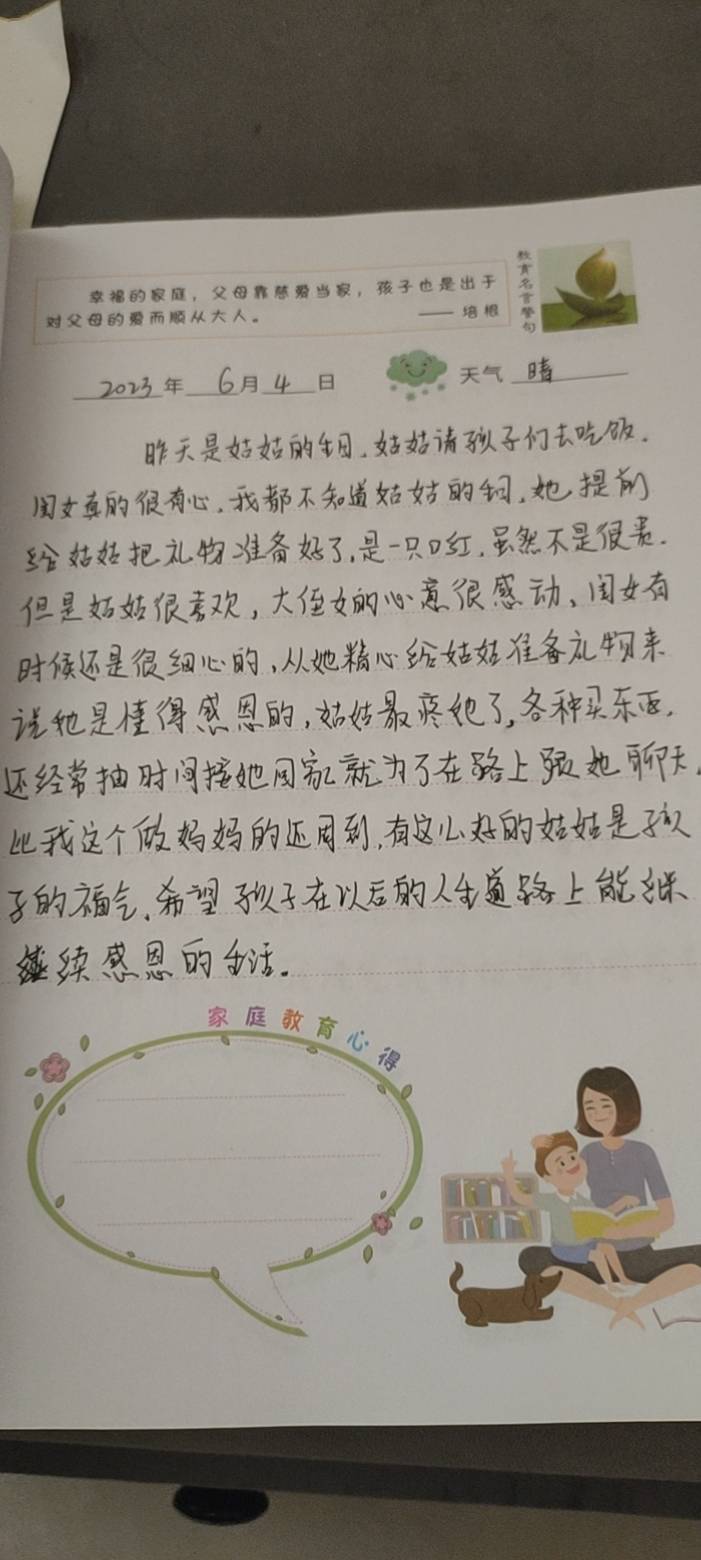 幸福的家庭，父母靠慈爱当家，孩子也是出于
对父母的爱而顺从大人。 —— 培根
教育名言警句
2023年 6月4日 天气 晴
昨天是姑姑的生日，姑姑请孩子们去吃饭，
闺女真的很有心，我都不知道姑姑的生日，她提前
给姑姑把礼物准备好了，是一只口红，虽然不是很贵，
但是姑姑很喜欢，大侄女的心意很感动、闺女有
时候还是很细心的，从她精心给姑姑准备礼物来
说她是懂得感恩的，姑姑最疼她了，各种买东西，
还经常抽时间接她回家就为了在路上跟她聊天，
比我这个做妈妈的还周到，有这么好的姑姑是孩
子的福气，希望孩子在以后的人生道路上能继
续感恩的生活。
家庭教育心得